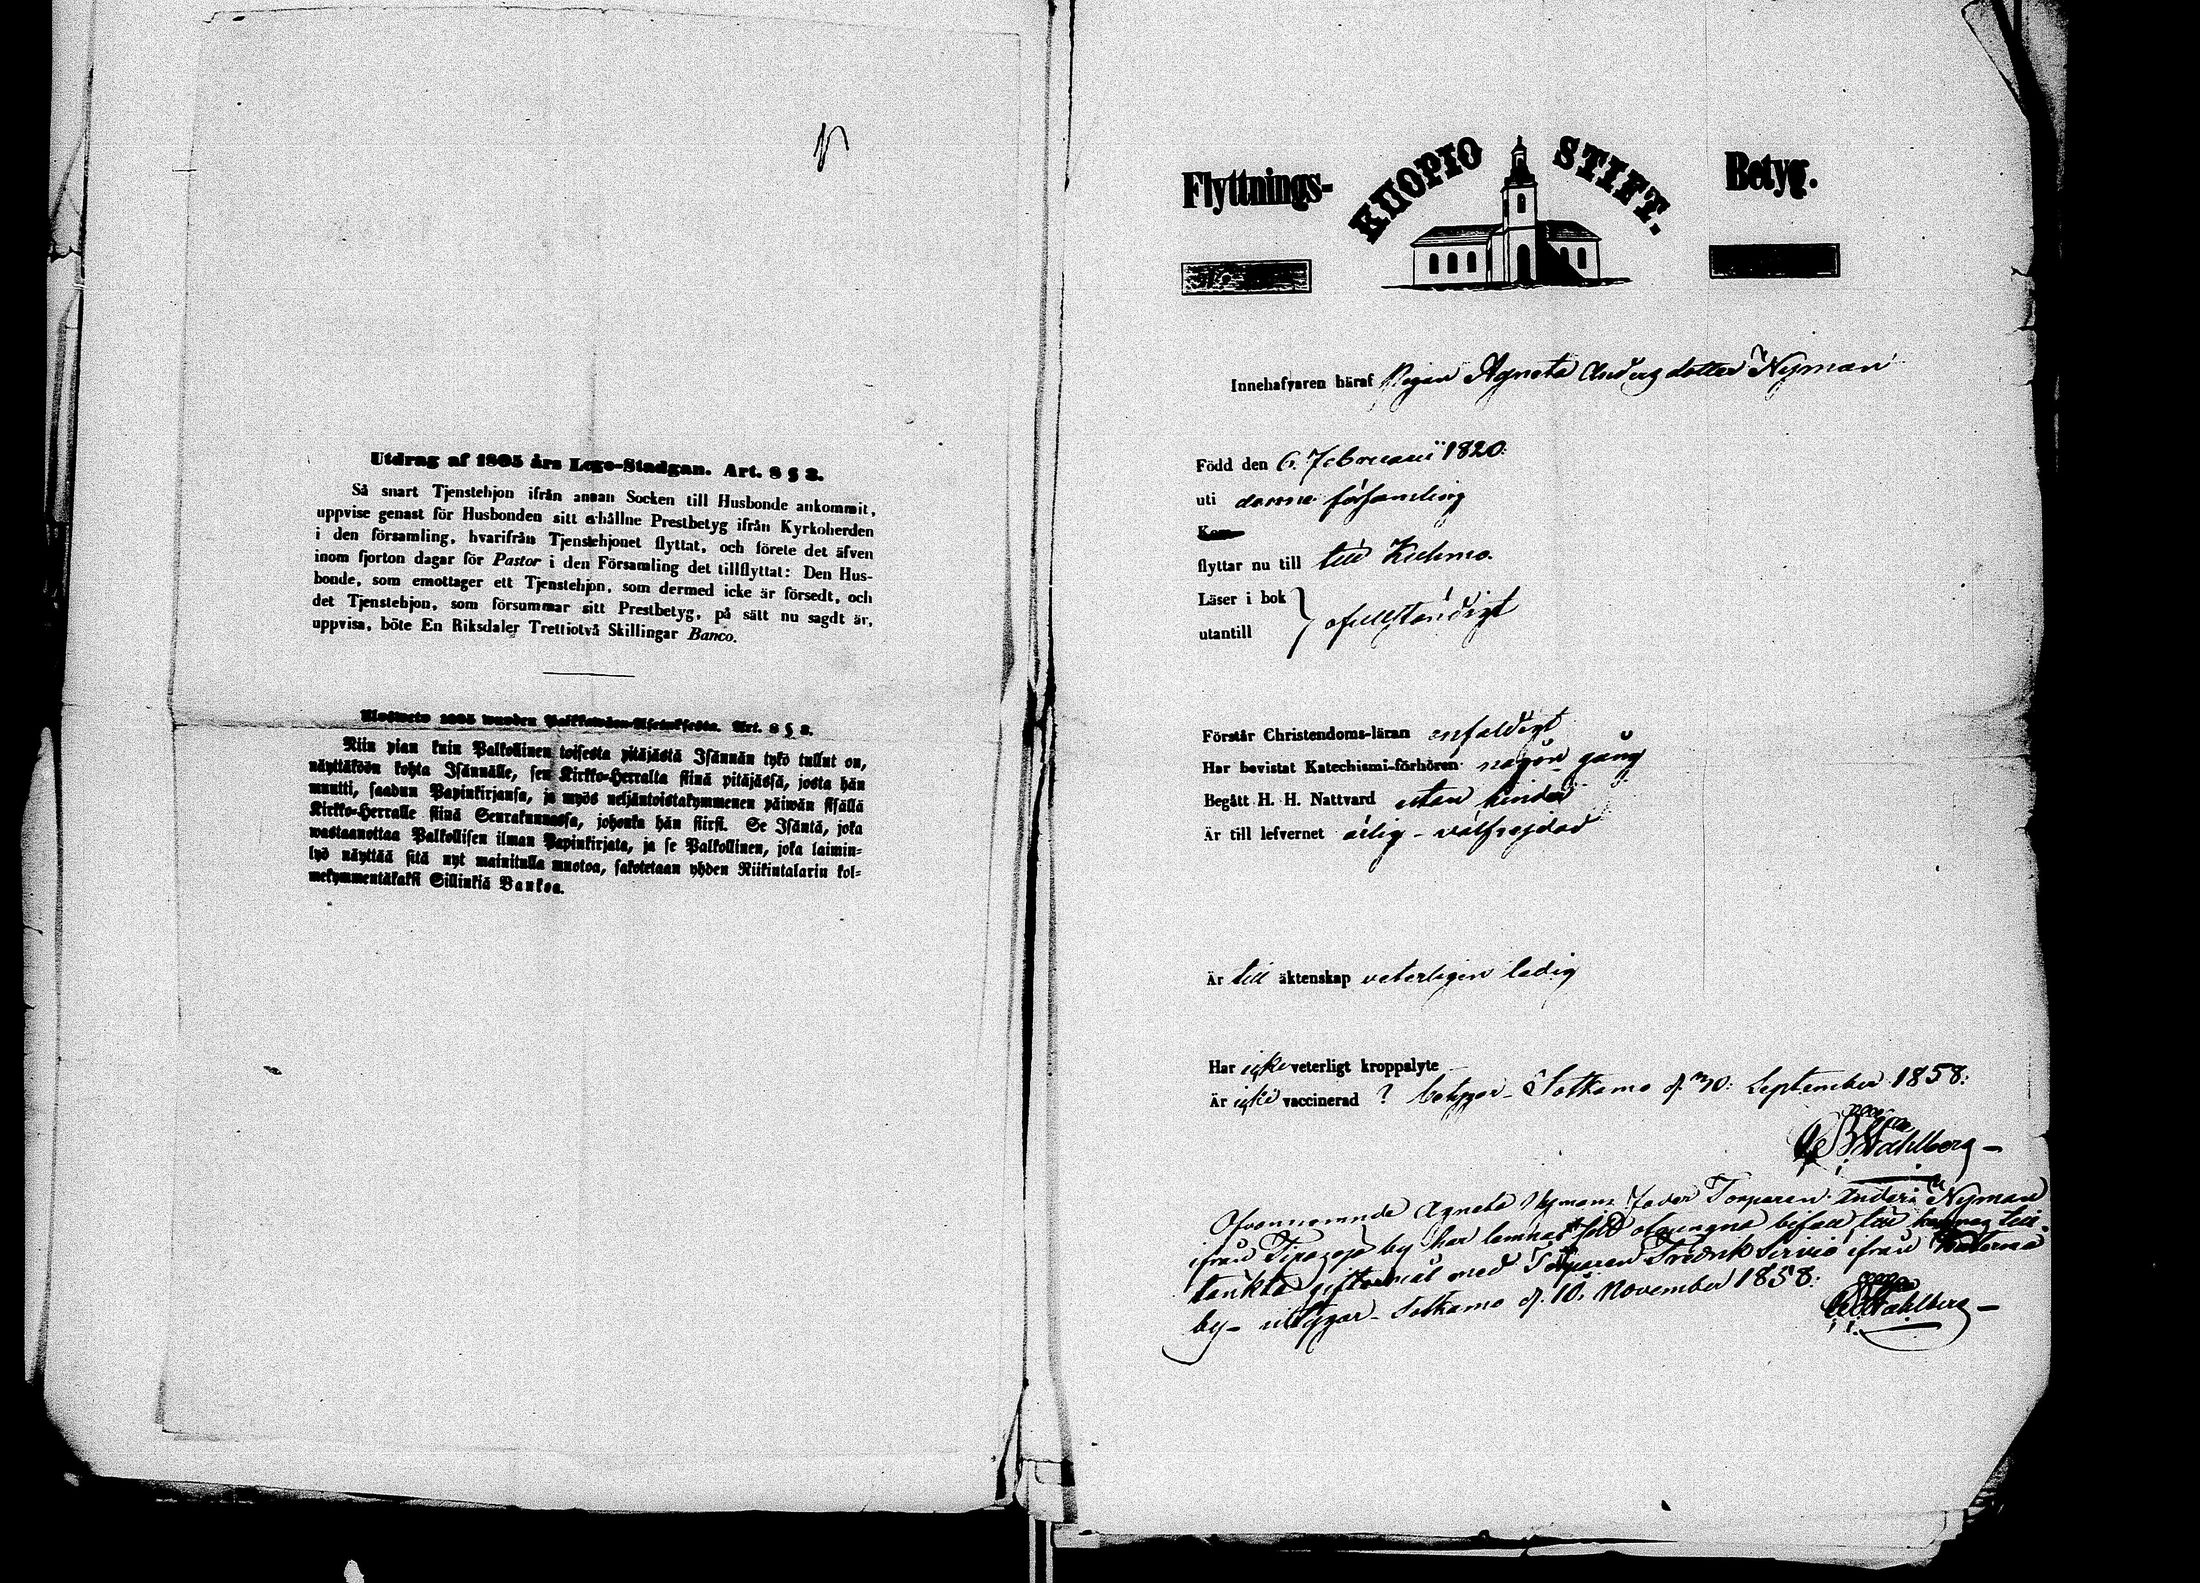 Utdrag af 1805 års Lego-Stadgan. Art. 8 § 2.
Så snart Tjenstehjon ifrån annan Socken till Husbonde ankommit,
uppvise genast för Husbonden sitt erhållne Prestbetyg ifrån Kyrkoherden
i den församling, hvarifrån Tjenstehjonet flyttat, och förete det äfven
inom fjorton dagar för Pastor i den Församling det tillflyttat: Den Hus-
bonde, som emottager ett Tjenstehjon, som dermed icke är försedt, och
det Tjenstehjon, som försummar sitt Prestbetyg, på sätt nu sagdt är,
uppvisa, böte En Riksdaler Trettiotvå Skillingar Banco.
1805 wuoden Palkkawäen-Asetuksesta. Art. 8 § 2.
Niin pian kuin Palkollinen toisesta pitäjästä Isännän tykö tullut on,
näyttäköön kohta Isännälle, sen Kirkko-Herralta siinä pitäjässä, josta hän
muutti, saadun Papinkirjansa, ja myös neljäntoistakymmenen päiwän sisällä
Kirkko-Herralle siinä Seurakunnassa, johonka hän siirsi. Se Isäntä, joka
wastaanottaa Palkollisen ilman Papinkirjata, ja se Palkollinen, joka laimin-
lyö näyttää sitä nyt mainitulla muotoa, sakotetaan yhden Riikintalarin kol-
mekymmentäkaksi Sillinkiä Bankoa.
Flyttnings- KUOPIO STIFT. Betyg.
Innehafvaren häraf Pigan Agneta Andersdotter Nyman
Född den 6. Februarii 1820.
uti denna församling
Kom
flyttar nu till till Kuhmo.
Läser i bok
utantill } ofullständigt
Förstår Christendoms-läran enfaldigt
Har bevistat Katechismi-förhören någon gång
Begått H. H. Nattvard utan hinder
Är till lefvernet ärlig - välfrejdad
Är till äktenskap veterligen ledig
Har icke veterligt kroppslyte
Är icke vaccinerad ? betygar - Sotkamo d. 30. September 1858:
Wahlberg -
Ofvannemnde Agneta Nymans fader Torparen Anders Nyman
ifrån by har lemnat sitt otvungna bifall till hennes till-
tänkta giftermål med Torparen Fredrik Servio ifrån
by - intygar - Sotkamo d. 10. November 1858:
Wahlberg -